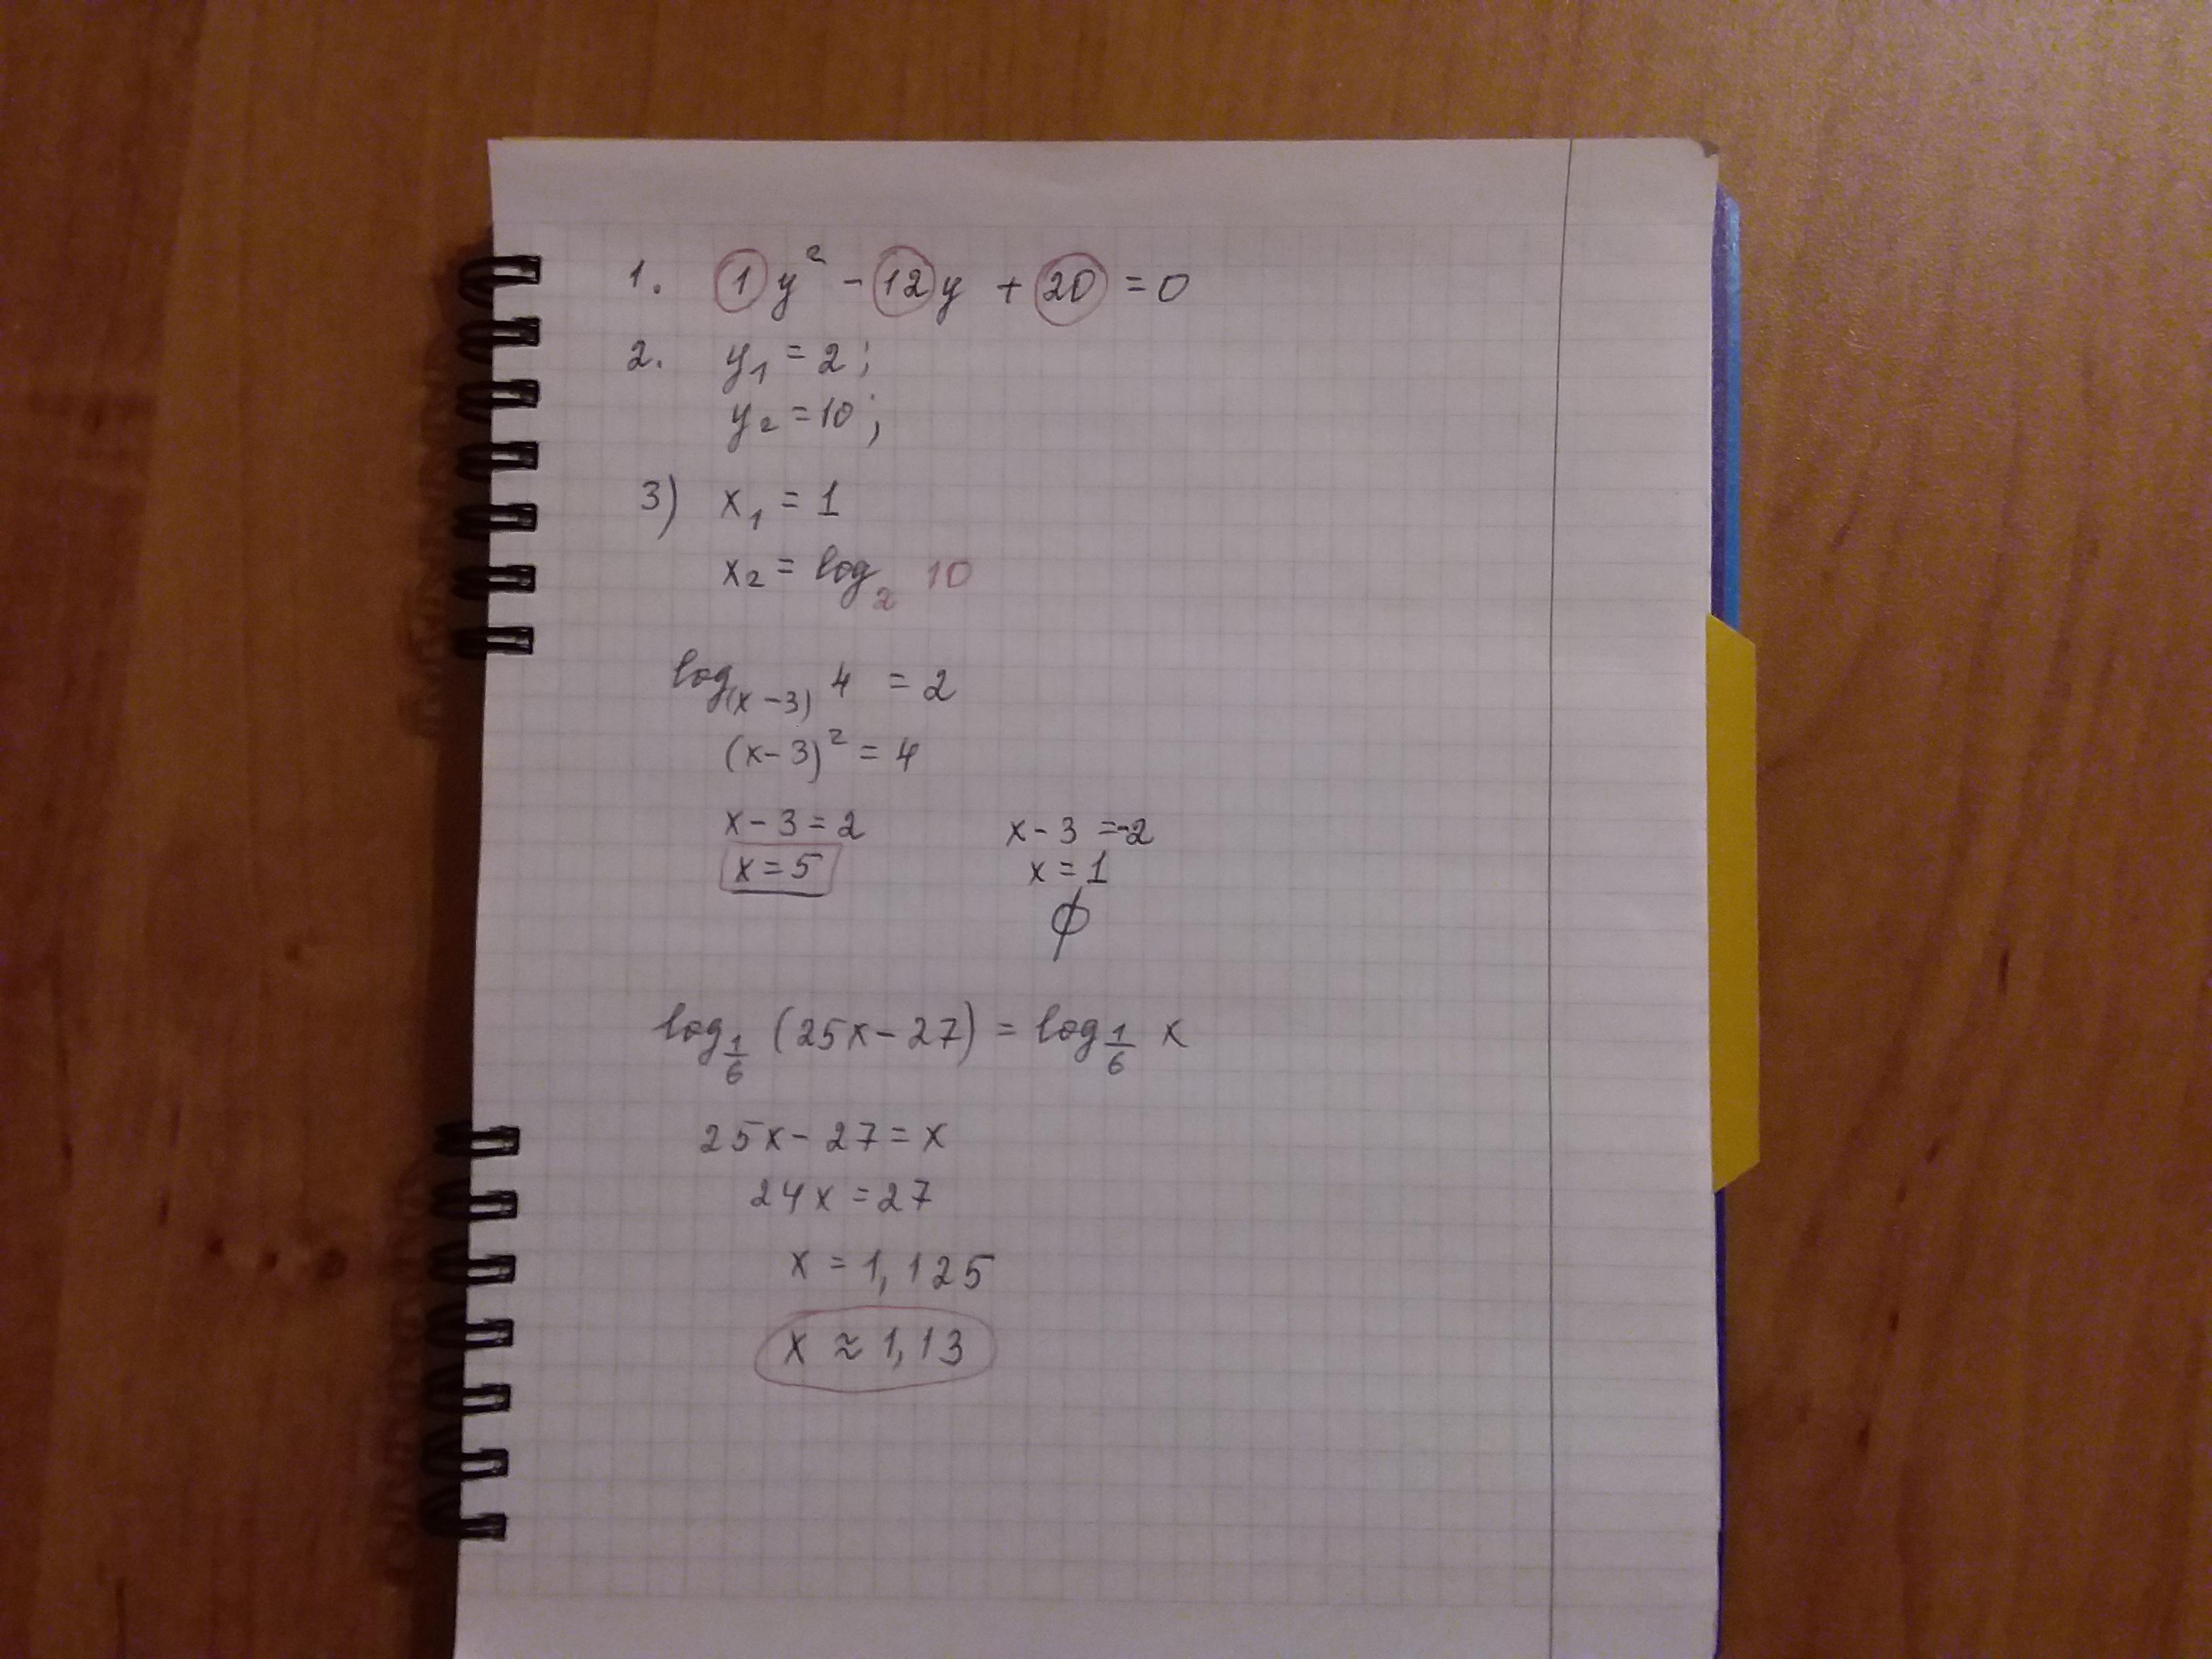 1. 1y² - 12y + 20 = 0
2. y₁ = 2;
y₂ = 10;
3) x₁ = 1
x₂ = log₂ 10
log₍ₓ₋₃₎ 4 = 2
(x-3)² = 4
x - 3 = 2 x - 3 = -2
x = 5 x = 1
∅
log_{1/6} (25x - 27) = log_{1/6} x
25x - 27 = x
24x = 27
x = 1,125
x ≈ 1,13